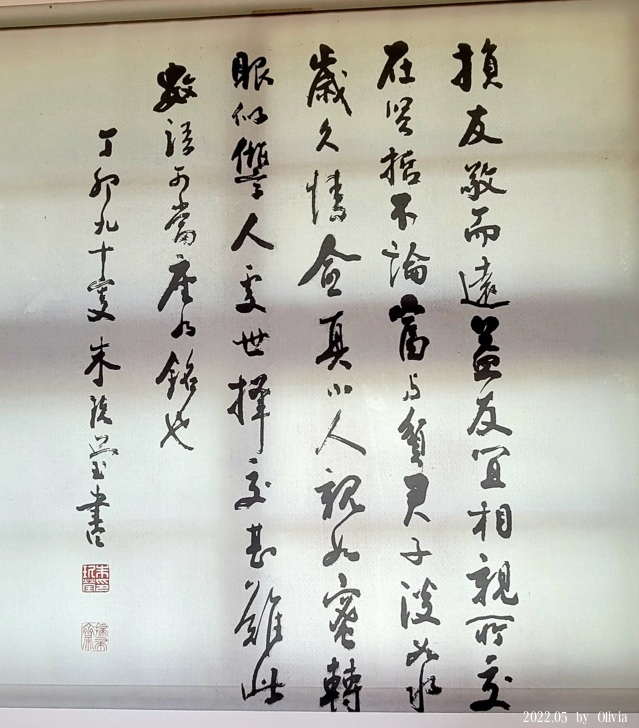 損友敬而遠益友宜相親所交
在賢哲不論富与貧君子淡如水
歲久情愈真小人親如蜜轉
眼似讐人處世擇交甚難此
數語可當座右銘也
丁卯九十叟朱玖瑩書
2022.05 by Olivia